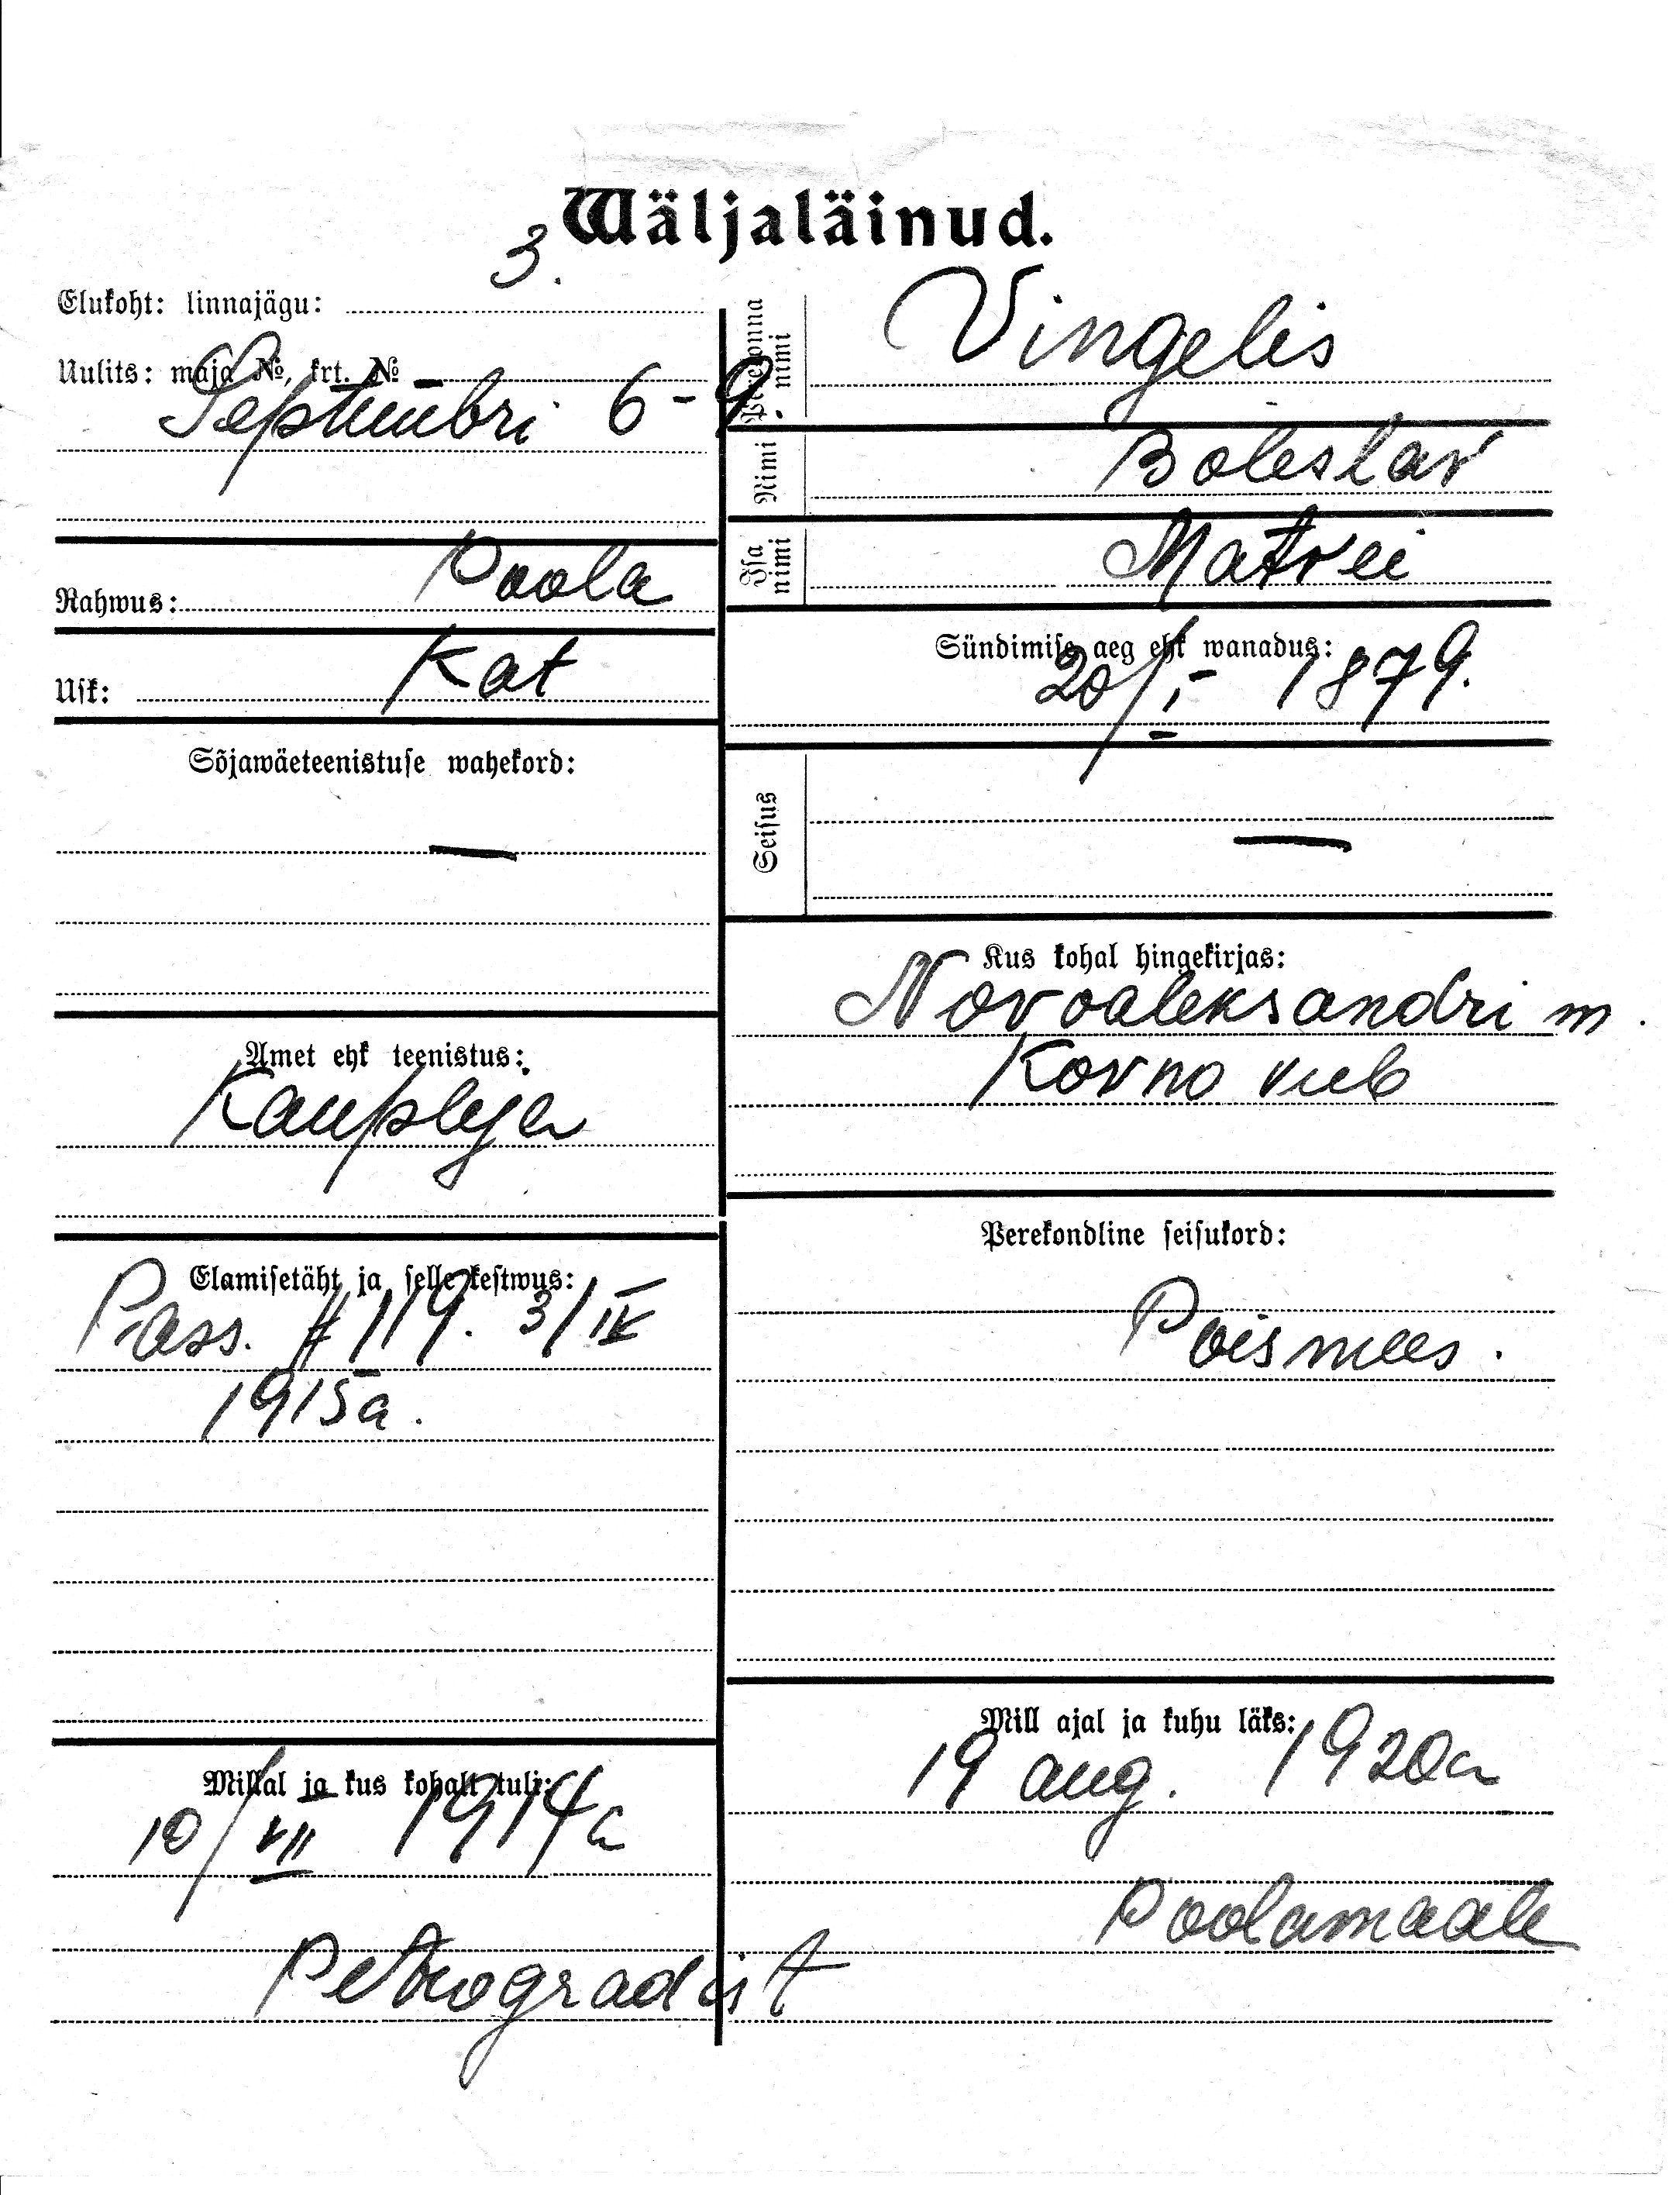 Wäljaläinud.
Elukoht: linnajägu: 3.
Uulits: maja №, krt. №
Septembri 6-9.
Rahwus: Poola
Usk: Kat
Sõjawäeteenistuse wahekord:
—
Amet ehk teenistus:
Kaupleja
Elamisetäht ja selle kestwus:
Pass. # 119. 3/IV
1915a.
Millal ja kus kohalt tuli:
10/VII 1914a
Petrogradist
Perekonna nimi
Vingelis
Nimi
Boleslav
Isa nimi
Matvei
Sündimise aeg ehk wanadus:
20/I - 1879.
Seisus
—
Kus kohal hingekirjas:
Novoaleksandri m.
Kovno kub
Perekondline seisukord:
Poismees.
Mill ajal ja kuhu läks:
19 aug. 1920a
Poolamaale